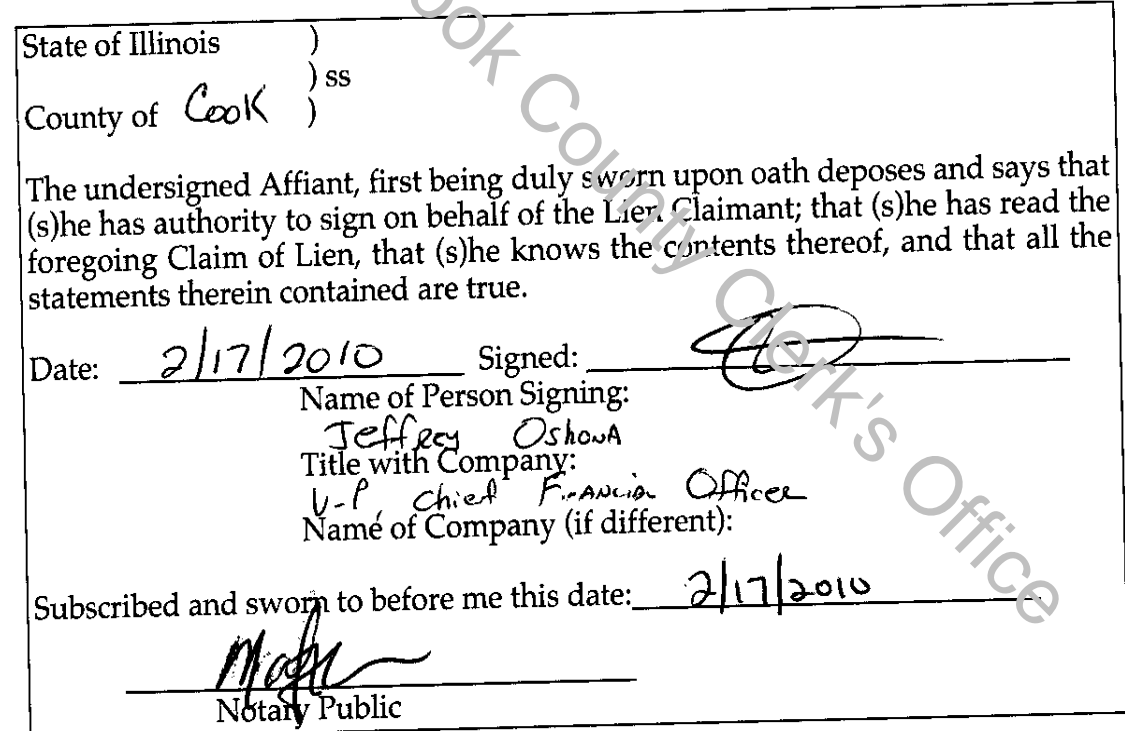 State of Illinois )
) ss
County of Cook )
The undersigned Affiant, first being duly sworn upon oath deposes and says that
(s)he has authority to sign on behalf of the Lien Claimant; that (s)he has read the
foregoing Claim of Lien, that (s)he knows the contents thereof, and that all the
statements therein contained are true.
Date: 2/17/2010 Signed:
Name of Person Signing:
Jeffrey Oshona
Title with Company:
V-P, Chief Financial Officer
Name of Company (if different):
Subscribed and sworn to before me this date: 2/17/2010
Notary Public
ook County Clerk's Office